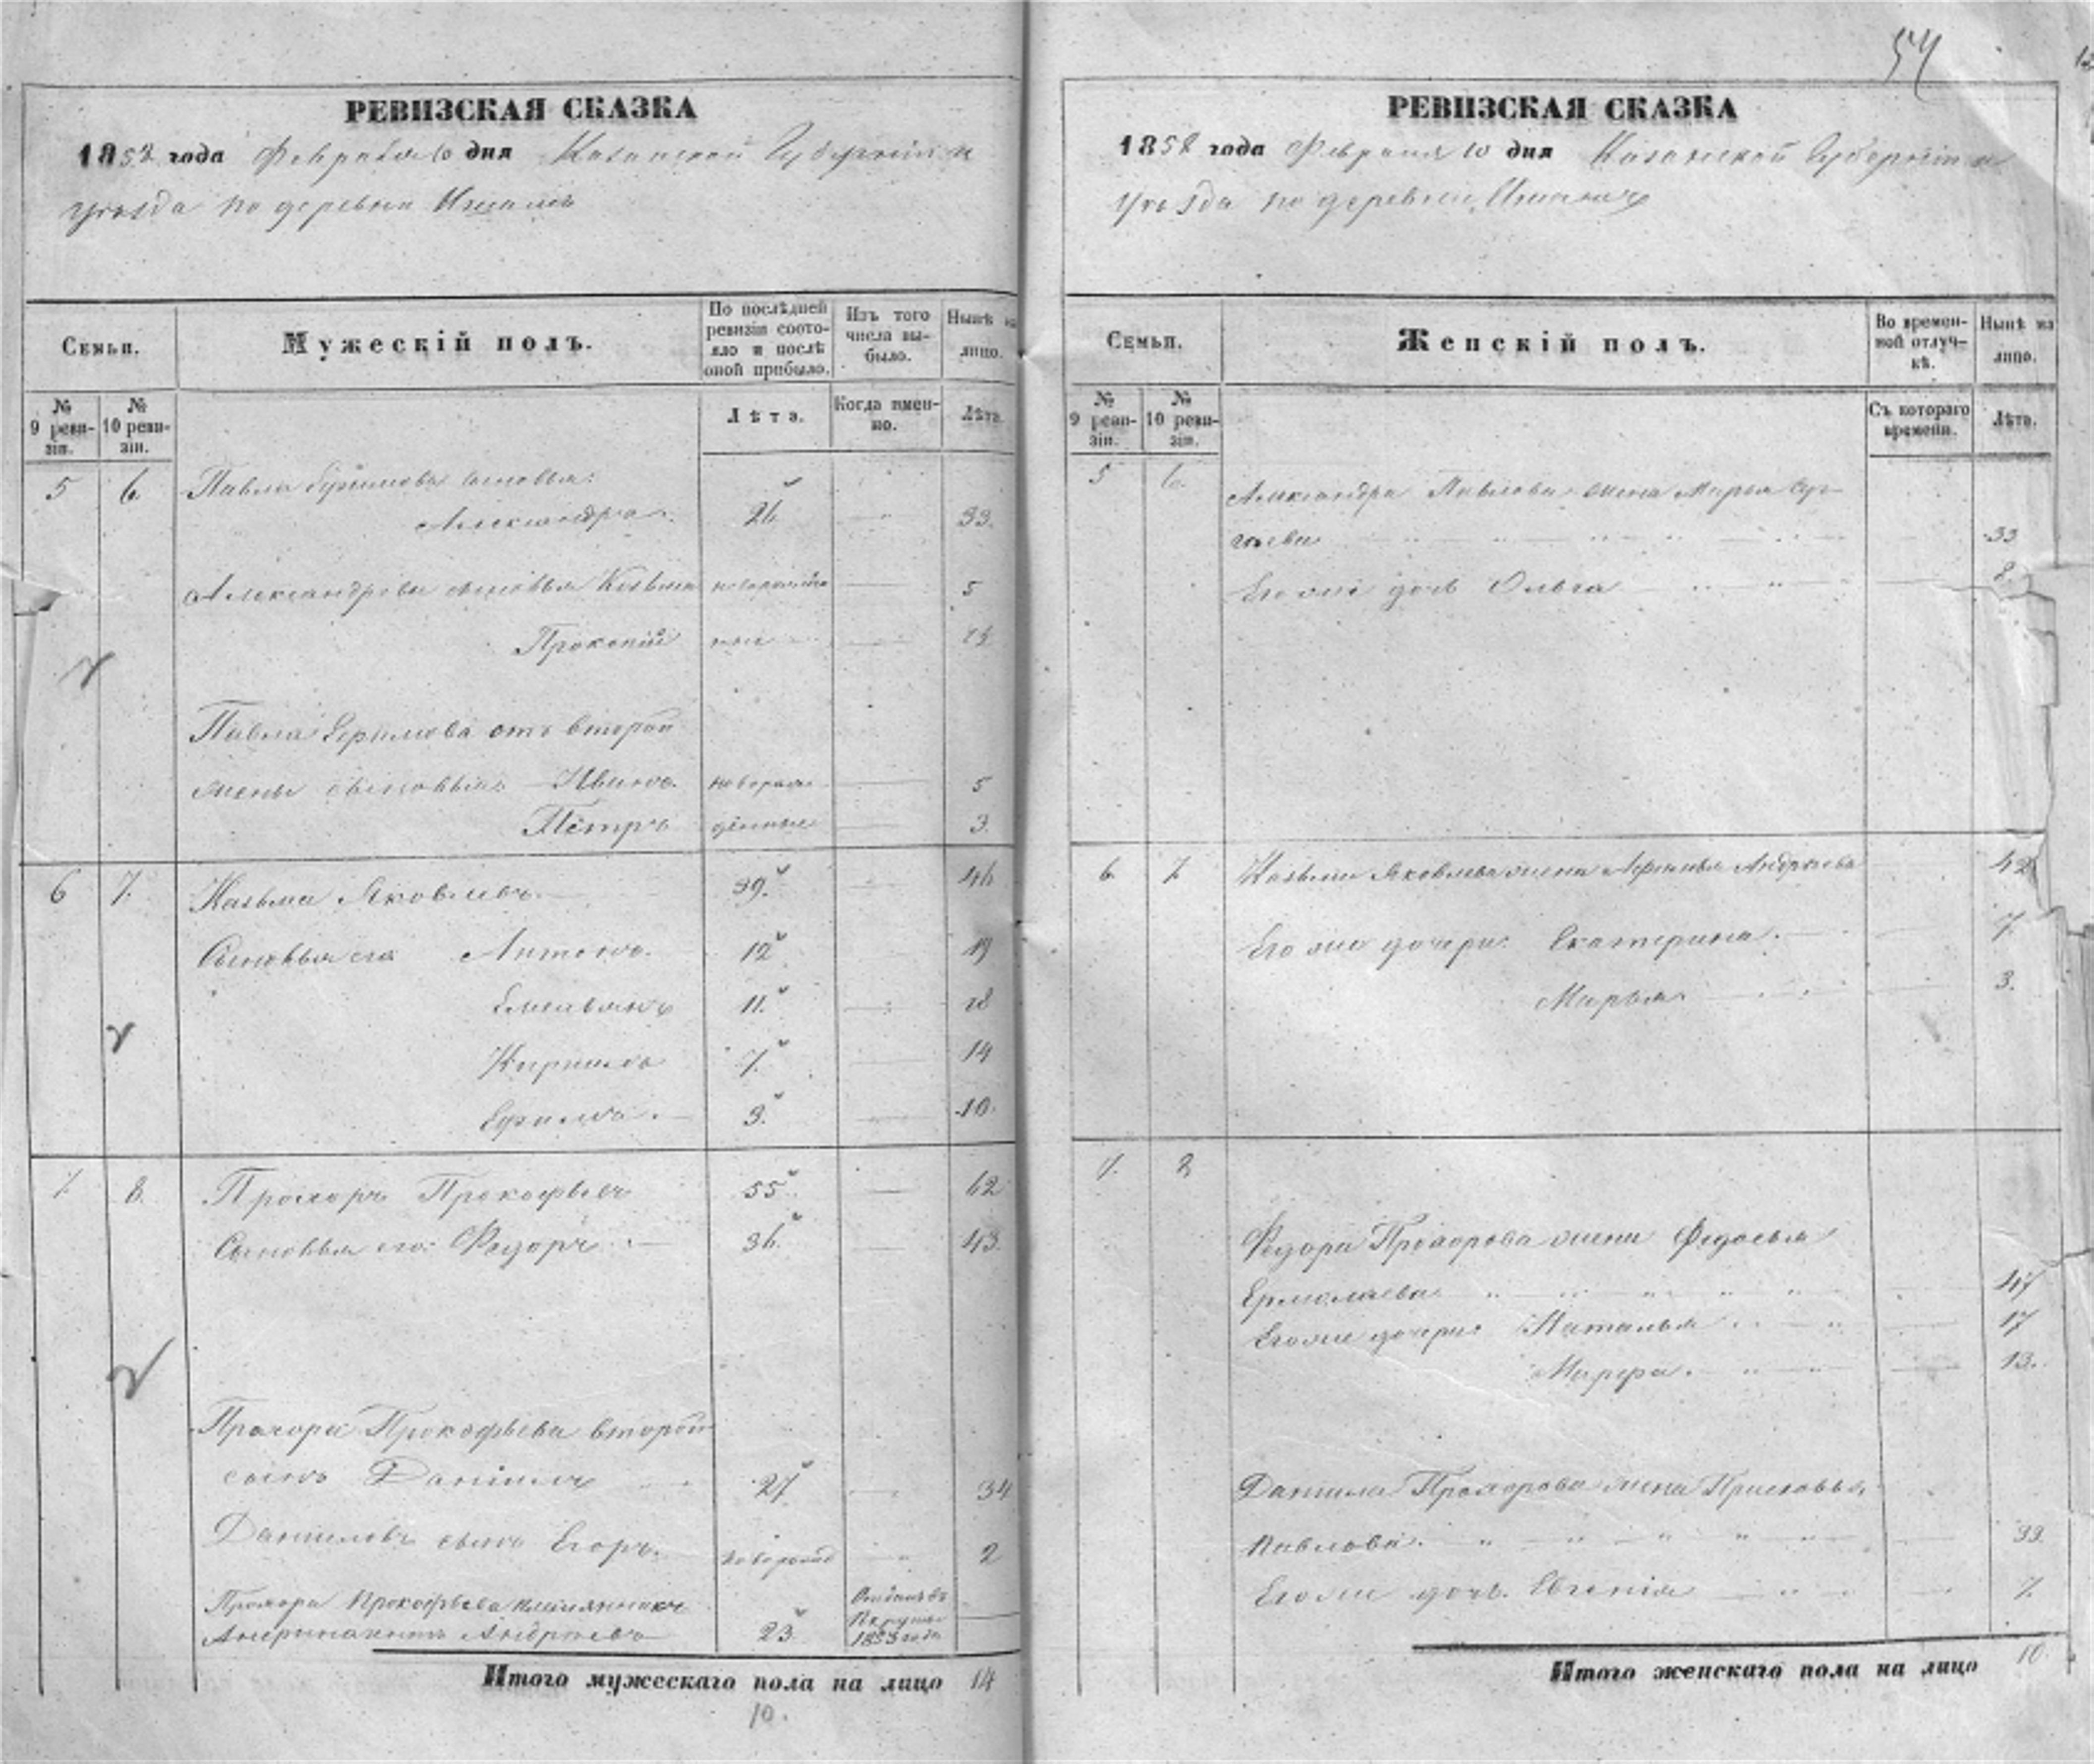 54
РЕВИЗСКАЯ СКАЗКА
1858 года Февраля 10 дня Казанской Губернiи и
уѣзда по деревни
Семьи.
Мужескiй полъ.
По послѣдней ревизiи состояло и послѣ оной прибыло.
Изъ того числа выбыло.
Нынѣ на лицо.
№ 9 ревизiи.
№ 10 ревизiи.
Лѣта.
Когда именно.
Лѣта.
5 6 Павла Ефимова сыновья:
Александръ 26 33.
Александровы сыновья Козьма новорож 5
Прокопiй
Павла Ефимова отъ второй
жены сыновья: Иванъ новорож 5
Петръ денные 3.
6 7. Козьма Яковлевъ. 39. 46
Сыновья его Антонъ. 12 19
Емельянъ 11. 18
Кирилъ 7. 14
Ефимъ. 3. 10.
7. 8. Прохоръ Прокофьевъ 55 62
Сыновья его: Федоръ 36. 43.
Прохора Прокофьева второй
сынъ Данiилъ 27 34
Даниловъ сынъ Егоръ. новорожд 2
Прохора Прокофьева племянникъ
Андреевъ 23 Отданъ въ Рекруты 1853 года
Итого мужескаго пола на лицо 14
10.
РЕВИЗСКАЯ СКАЗКА
1858 года Февраля 10 дня Казанской Губернiи и
уѣзда по деревни
Семьи.
Женскiй полъ.
Во временной отлучкѣ.
Нынѣ на лицо.
№ 9 ревизiи.
№ 10 ревизiи.
Съ котораго времени.
Лѣта.
5 6. Александра Павлова жена Марья
33
Его же дочь Ольга 8.
6. 7. Козьмы Яковлева жена Андреева 42
Его же дочери: Екатерина. 7.
Марья 3.
7. 8
Федора Прохорова жена Федосья
Ермолаева 47
Его же дочери: Наталья 17
Марфа. 13.
Данила Прохорова жена Прасковья
Павлова. 33.
Его же дочь. Евгенiя 7.
Итого женскаго пола на лицо 10.